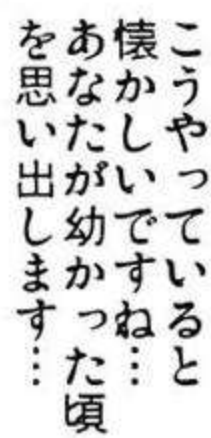 こうやっていると
懐かしいですね…
あなたが幼かった頃
を思い出します…